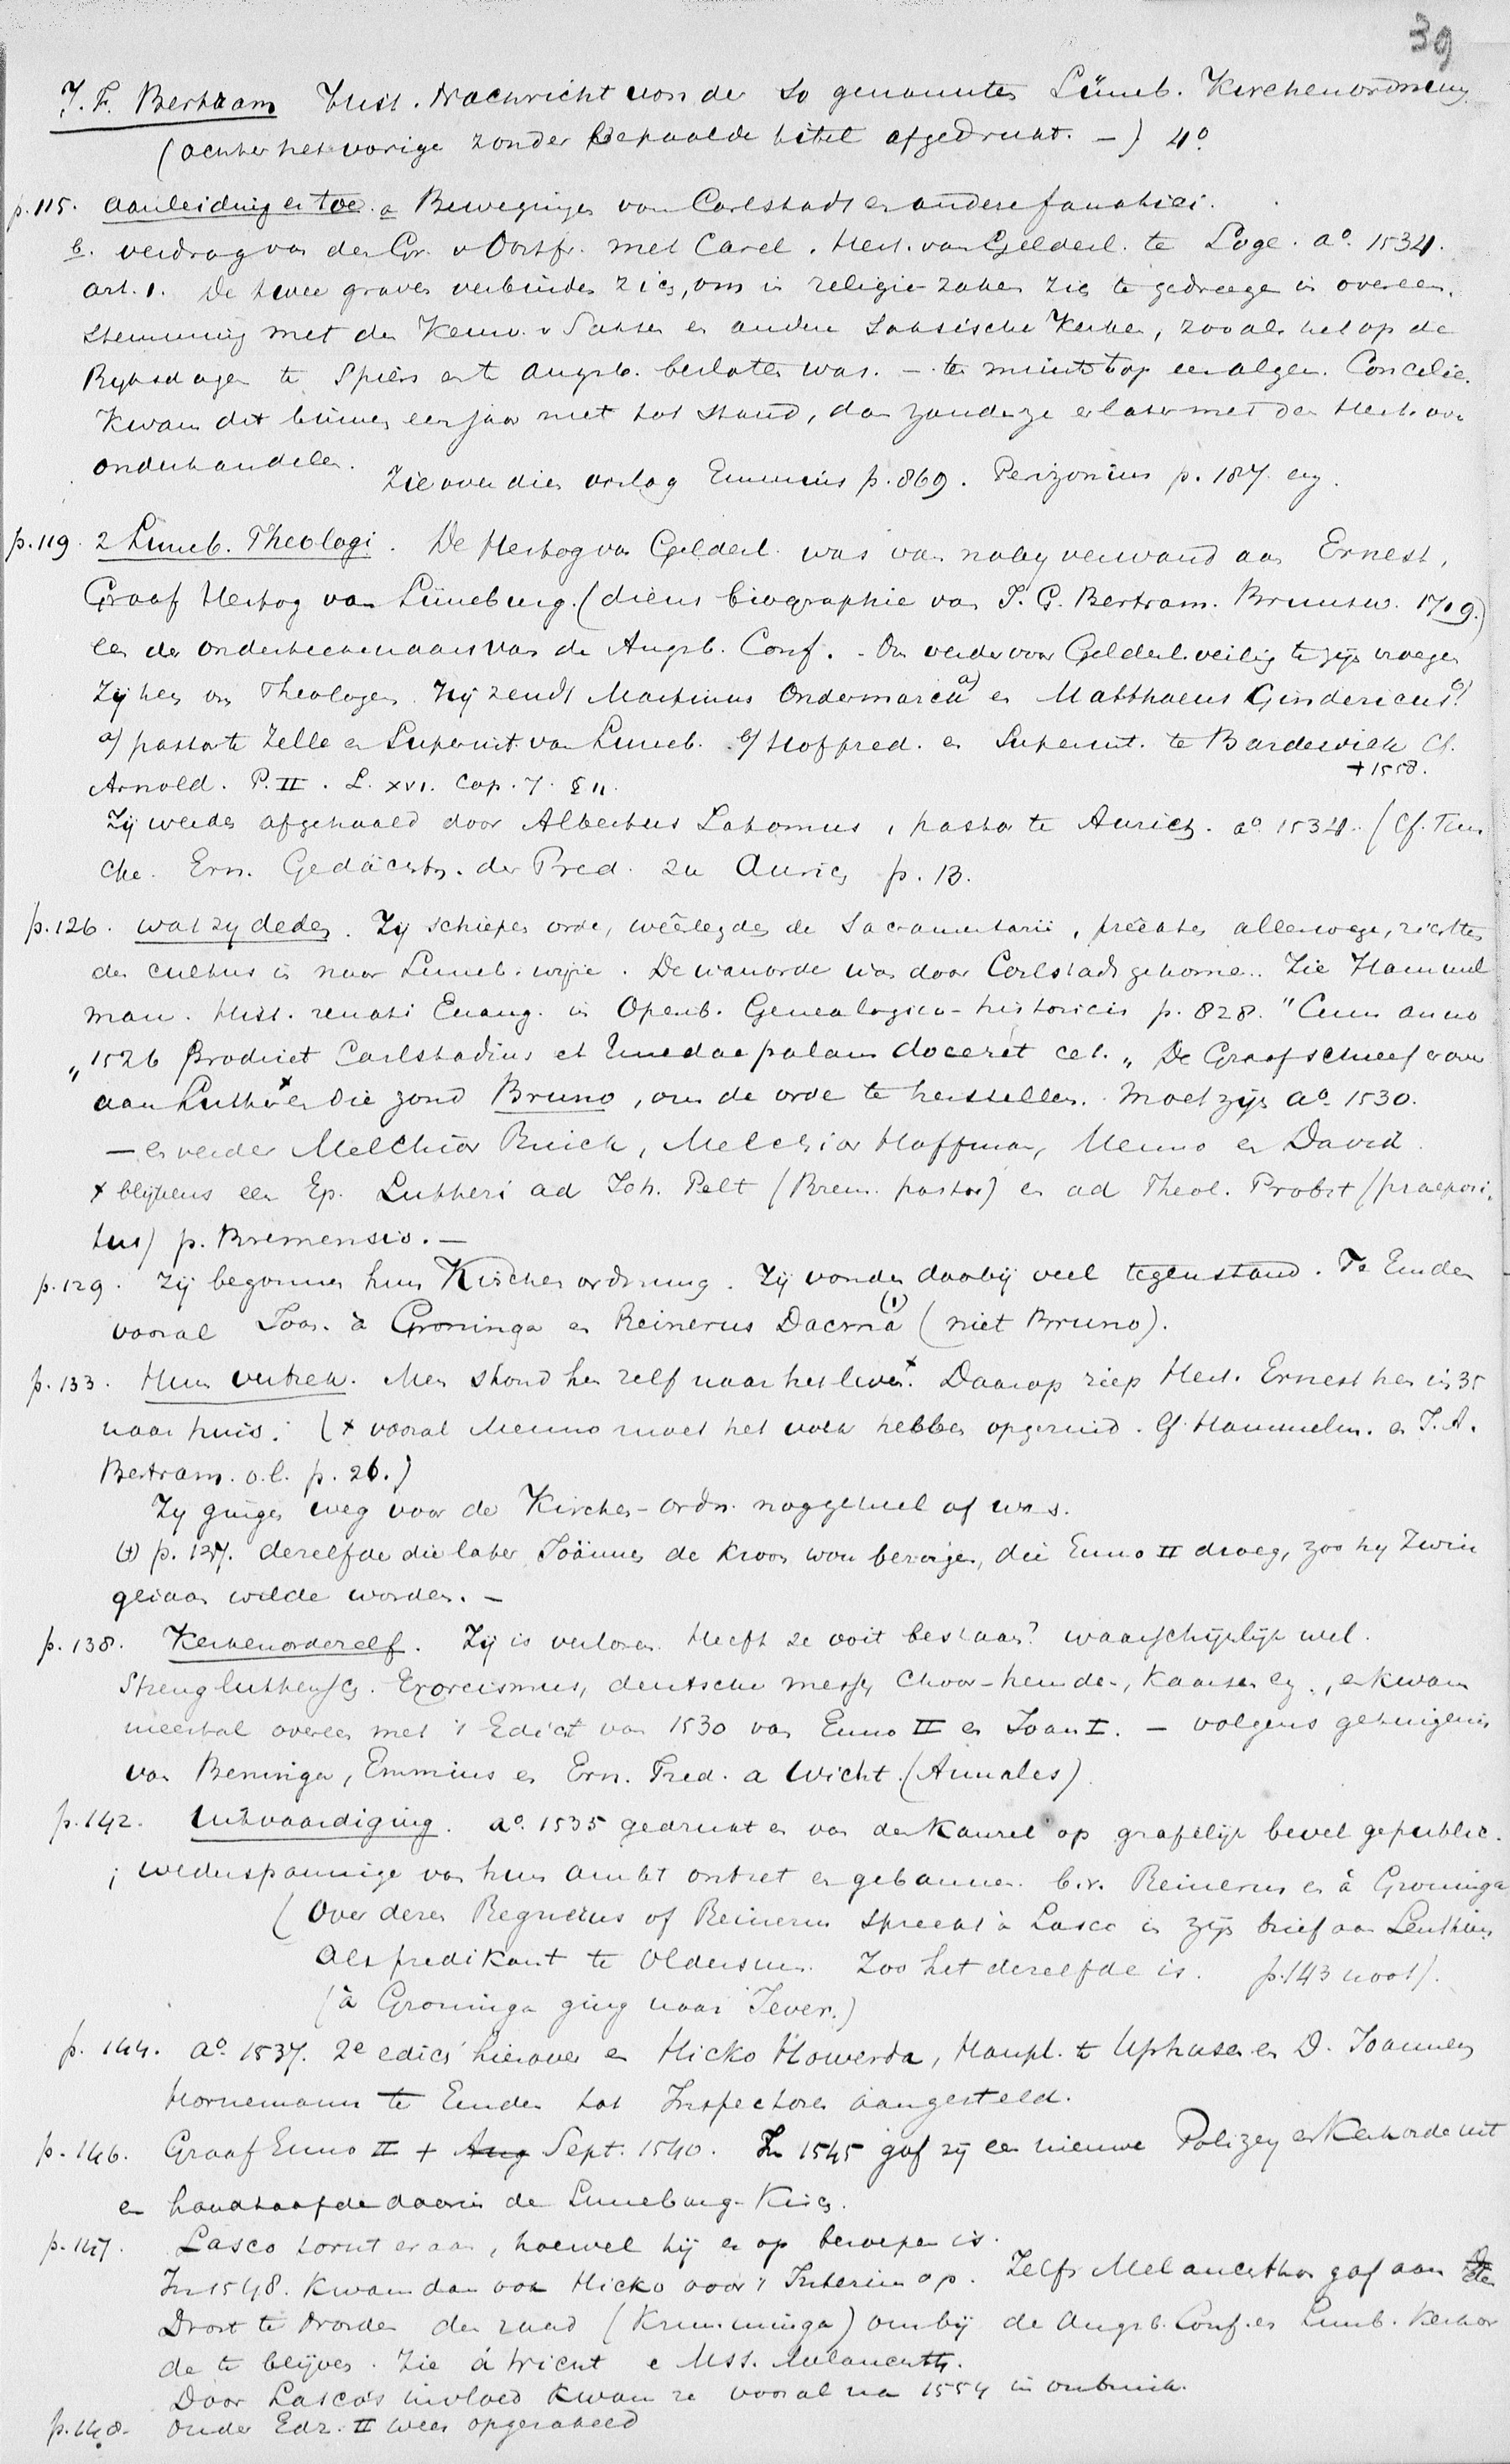 39
J. F. Bertram Hist. Nachricht von der so genannten Lüneb. Kirchenordnung
(achter het vorige zonder bepaalde titel afgedrukt. —) 4o
p. 115. aanleiding er toe. a Bewegingen van Carlstadt en andere fanatici.
b. verdrag van den Gr. v Oostfr. met Carel. Hert. van Gelderl. te Loge. ao. 1534.
art. 1. De twee graven verbinden zich, om in religie-zaken zich te gedragen in overeen-
stemming met den Keurv. v Saksen en andere Saksische Kerken, zooals het op de
Rijksdagen te Spiers en te Augsb. besloten was. — ten minste tot op een algem. Concilie.
Kwam dit binnen een jaar niet tot stand, dan zouden ze er later met den Hert. over
onderhandelen. Zie over dien oorlog Emmius p. 869. Perizonius p. 187. eng.
p. 119. 2 Luneb. Theologi. De Hertog van Gelderl. was van naby verwand aan Ernest,
Graaf Hertog van Lüneburg. (diens biographie van J. G. Bertram. Brunsw. 1719.)
een der onderteekenaars van de Augsb. Conf. - Om verder voor Gelderl. veilig te zijn vroegen
zij hem om Theologen. Hij zendt Martinus Ondermarck a) en Matthaeus Gindericus b)
a) pastor te Zelle en Superint. van Luneb. b) Hofpred. en Superint. te Bardewick Cf.
† 1558.
Arnold. P. II. L. XVI. Cap. 7. § 11.
Zij werden afgehaald door Albertus Lakomus, pastor te Aurich. ao 1534. (Cf. Fun
che. Ern. Gedächtn. der Pred. zu Aurich p. 13.
p. 126. wat zij deden. Zij schiepen orde, weêrlegden de Sacramentarii, preêkten allerwege, richtten
den cultus in naar Luneb. wijze. De wanorde was door Carlstadt gekomen. Zie Hammel
man. Hist. renati Euang. in Operib. Genealogico-historicis p. 828. "Cum anno
" 1526 Prodiret Carlstadius et Emedae palam doceret cet. " De Graaf schreef er over
aan Luther x en die zond Bruno, om de orde te herstellen. Moet zijn ao. 1530.
— en verder Melchior Rinck, Melchior Hoffman, Menno en David.
x blijkens een Ep. Lutheri ad Joh. Pelt (Brem. pastor) en ad Theol. Probst (praeposi-
tus) p. Bremensis. —
p. 129. Zij begonnen hun Kirchenordnung. Zij vonden daarbij veel tegenstand. Te Emden
vooral Joan. à Groninga en Reinerus Dacma (1) (niet Bruno).
p. 133. Hun vertrek. Men stond hen zelf naar het leven. x Daarop riep Hert. Ernest hen in 35
naar huis. (x vooral Menno moet het volk hebben opgeruid. Cf. Hammelm. en J. A.
Bertram. o.l. p. 26.)
Zij gingen weg voor de Kirchen-ordn. nog geheel af was.
(1) p. 127. dezelfde die later Joännes de kroon wou bezorgen, die Enno II droeg, zoo hij Zwin
gliaan wilde worden. —
p. 138. Kerkenorde zelf. Zij is verloren. Heeft ze ooit bestaan? waarschijnlijk wel.
Streng luthersch. Exorcismus, deutsche messe, Choor-hemden, Kaarsen eng., en kwam
meestal overeen met 't Edict van 1530 van Enno II en Joan I. — volgens getuigenis
van Beninga, Emmius en Ern. Fred. a Wicht. (Annales)
p. 142. Uitvaardiging. ao. 1535 gedrukt en van den Kansel op grafelijk bevel gepublic.
; wederspannige van hun ambt ontzet en gebannen. b.v. Reinerus en à Groninga
(Over dezen Regnerus of Reinerus spreekt à Lasco in zijn brief aan Lenthius
als predikant te Oldersum. Zoo het dezelfde is. p. 143 noot).
(à Groninga ging naar Jever.)
p. 144. ao. 1537. 2e edict hierover en Hicko Howerda, Haupl. te Uphusen en D. Joannes
Hornemann te Emden tot Inspectoren aangesteld.
p. 146. Graaf Enno II † Aug Sept. 1540. In 1545 gaf zij een nieuwe Polizey en Kerkorde uit
en handhaafde daarin de Luneburg-Kirch.
p. 147. Lasco tornt er aan, hoewel hij er op beroepen is.
In 1548. Kwam dan ook Hicko voor 't Interim op. Zelfs Melancthon gaf aan den
Drost te Norden den raad (Krumminga) om bij de Augsb. Conf. en Lunb. Kerkor
de te blijven. Zie à Wicht e Mss. Melancth.
Door Lasco's invloed kwam ze vooral na 1554 in onbruik.
p. 148. onder Edz. II weer opgerakeld